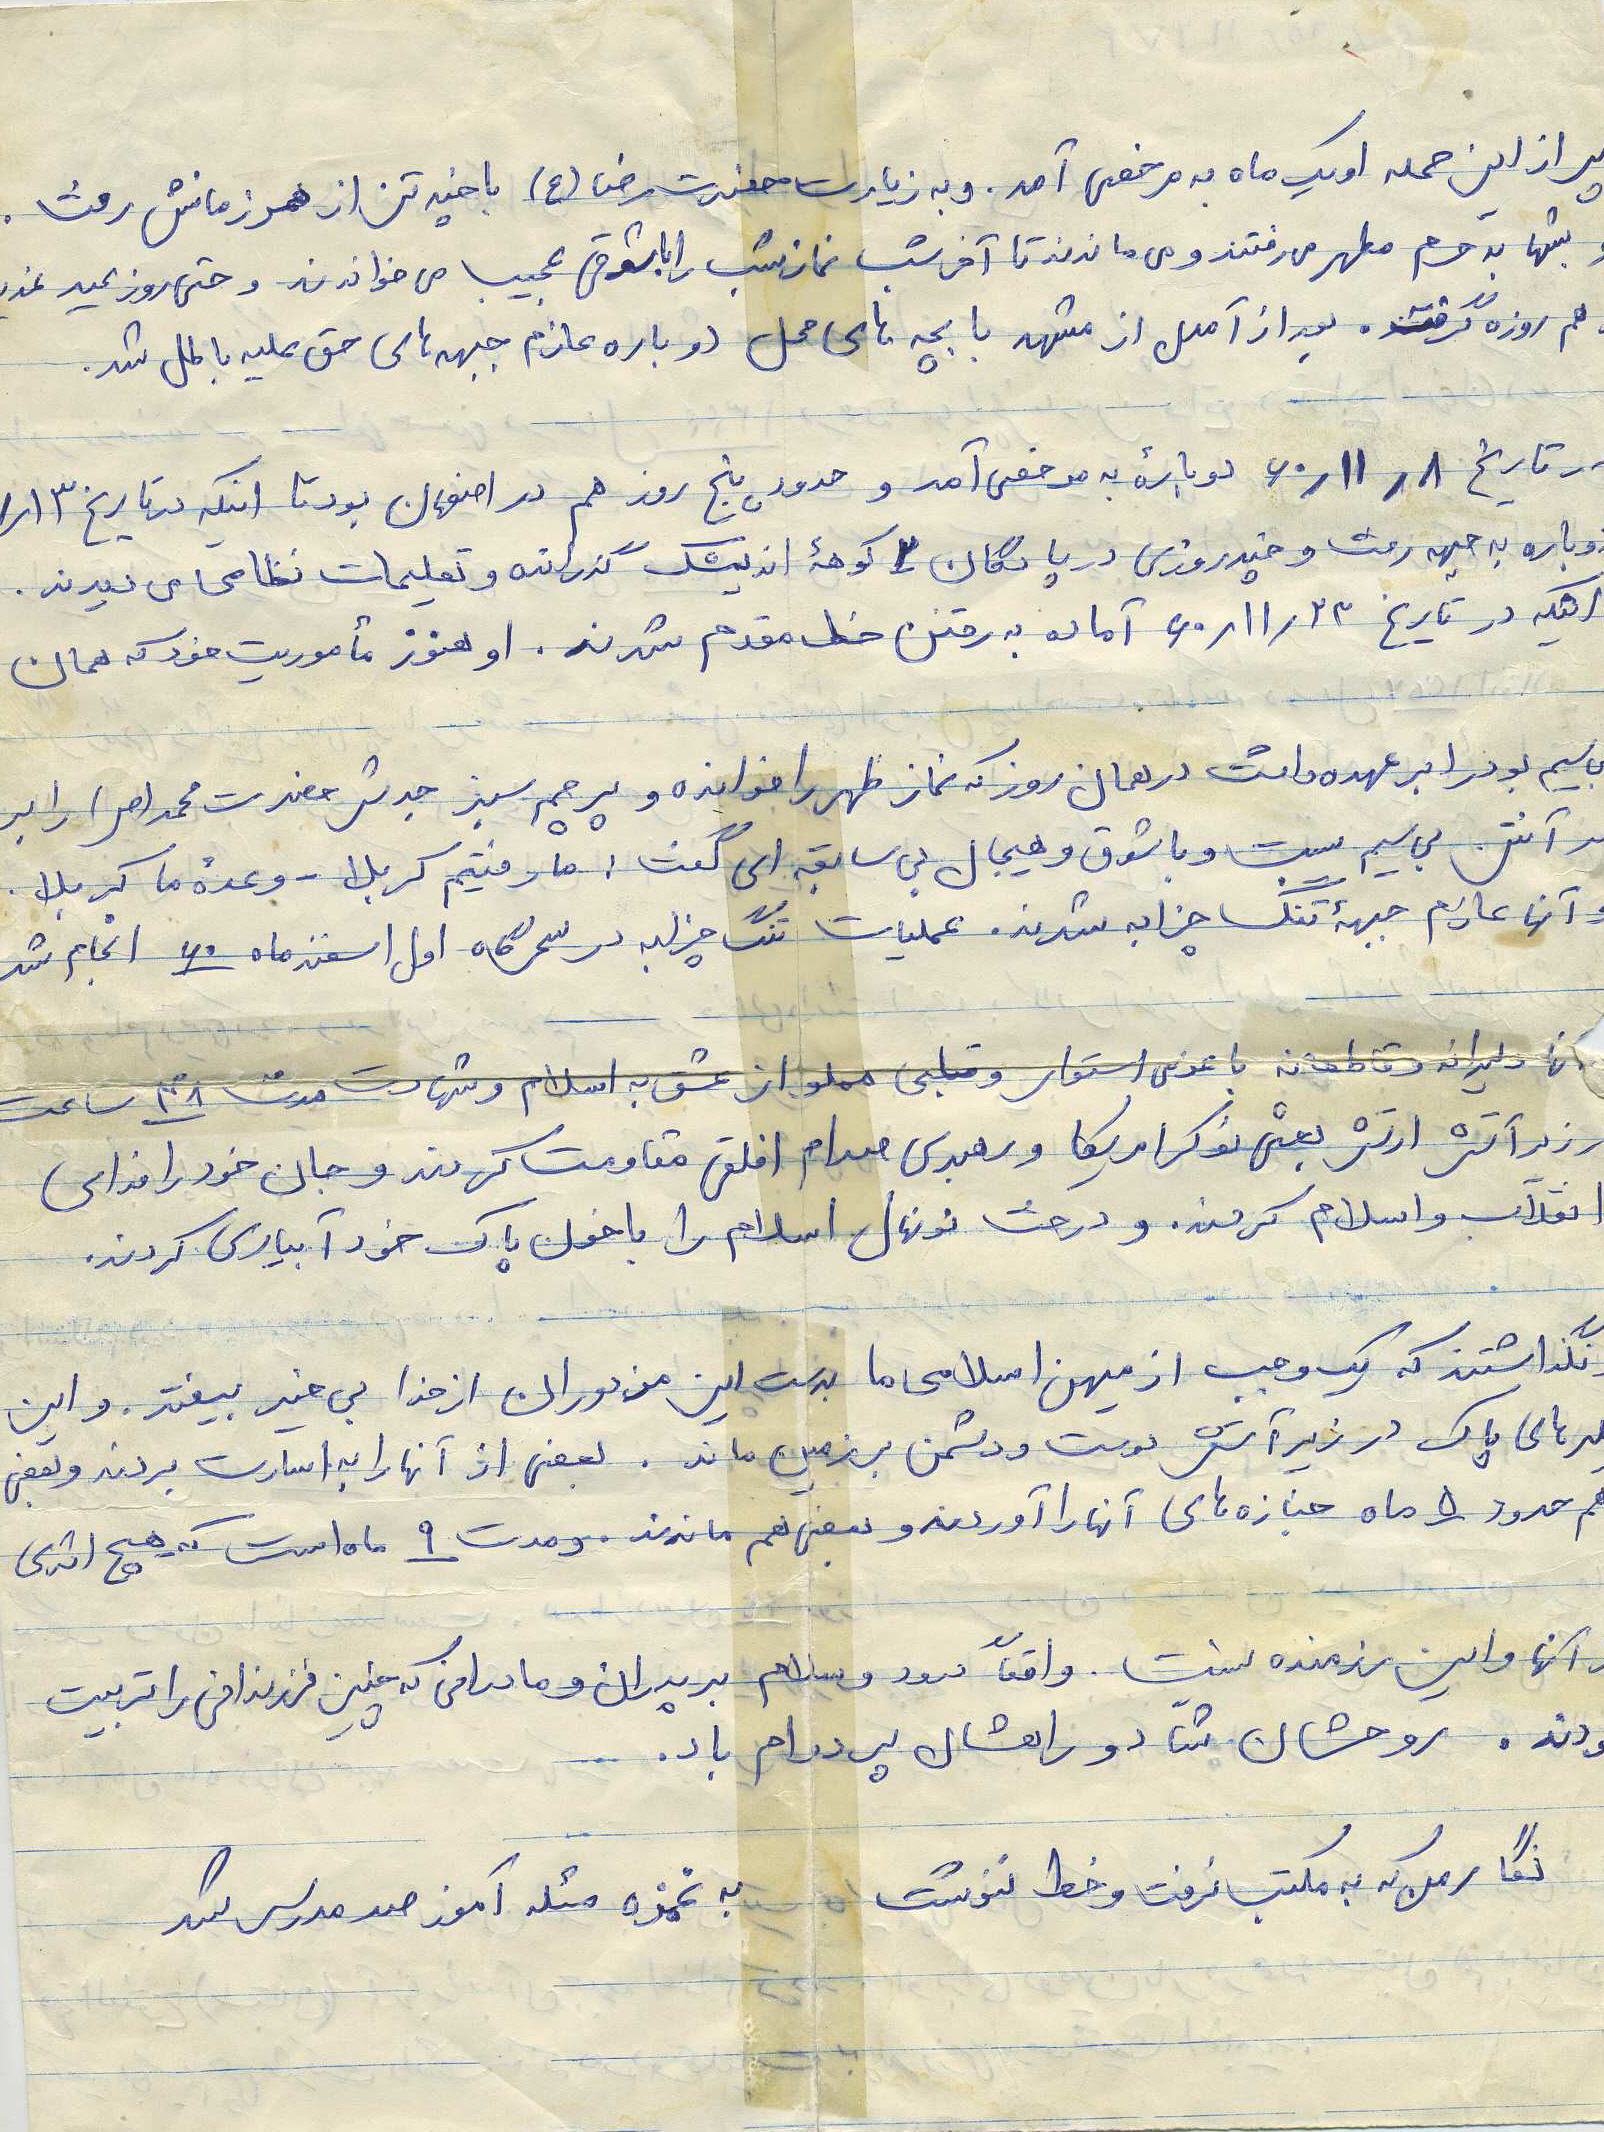 از این حمله او یک ماه به مرخصی آمد. و به زیارت حضرت رضا (ع) با چند تن از همرزمانش رفت.
شبها به حرم مطهر می رفتند و می ماندند تا آخر شب نماز شب را با شوقی عجیب می خواندند و حتی روز عید
هم روزه گرفتند. بعد از آمدن از مشهد با بچه های محل دوباره عازم جبهه های حق علیه باطل شد.
در تاریخ ۶۰/۱۱/۸ دوباره به مرخصی آمد و حدود پنج روز هم در اصفهان بود تا اینکه در تاریخ ۱۳
دوباره به جبهه رفت و چند روزی در پادگان کوههٔ اندیمشک گذرانده و تعلیمات نظامی می دیدند.
اینکه در تاریخ ۶۰/۱۱/۲۳ آماده به رفتن خط مقدم شدند. او هنوز مأموریت خود که همان
بی سیم بود را بر عهده داشت در همان روز که نماز ظهر را خوانده و پرچم سبز جدش حضرت محمد (ص) را بر
آنتن بی سیم بست و با شوق و هیجان بی سابقه ای گفت: ما رفتیم کربلا - وعدهٔ ما کربلا.
و آنها عازم جبههٔ تنگ چزابه شدند. عملیات تنگ چزابه در سحرگاه اول اسفند ماه ۶۰ انجام شد
آنها دلیرانه و قاطعانه با عزمی استوار و قلبی مملو از عشق به اسلام و شهادت مدت ۴۸ ساعت
زیر آتش ارتش بعثی نوکر امریکا و رهبری صدام افلقی مقاومت کردند و جان خود را فدای
انقلاب و اسلام کردند. و درخت نونهال اسلام را با خون پاک خود آبیاری کردند.
و نگذاشتند که یک وجب از میهن اسلامی ما بدست این مزدوران از خدا بی خبر بیفتد. و این
های پاک در زیر آتش دوست و دشمن بر زمین ماند. بعضی از آنها را به اسارت بردند و بعضی
هم حدود ۵ ماه جنازه های آنها را آوردند و بعضی هم ماندند. و مدت ۹ ماه است که هیچ اثری
آنها و این رزمنده نیست. واقعاً درود و سلام بر پدران و مادرانی که چنین فرزندانی را تربیت
روحشان شاد و راهشان پر دوام باد. ...
نگار من که به مکتب نرفت و خط ننوشت به غمزه مسئله آموز صد مدرس شد